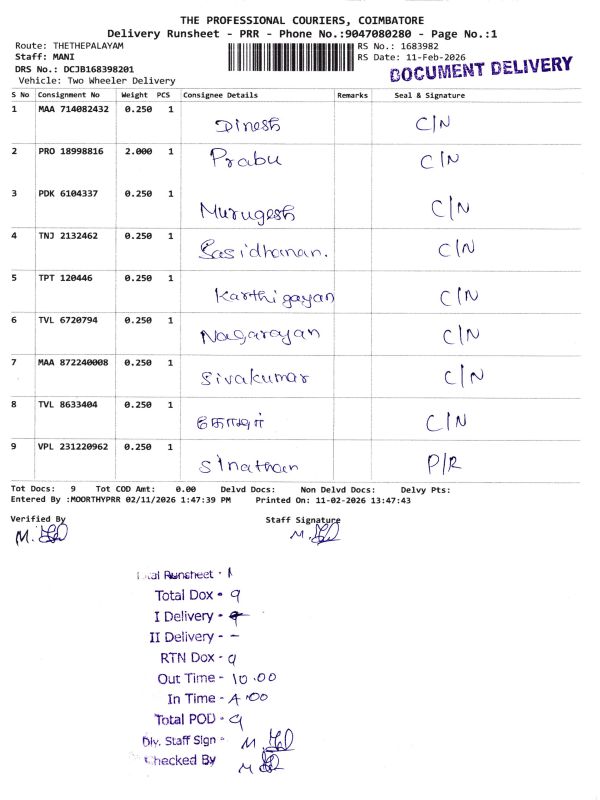 THE PROFESSIONAL COURIERS, COIMBATORE
Delivery Runsheet - PRR - Phone No.:9047080280 - Page No.:1
Route: THETHEPALAYAM
RS No.: 1683982
Staff: MANI
RS Date: 11-Feb-2026
DRS No.: DCJB168398201
DOCUMENT DELIVERY
Vehicle: Two Wheeler Delivery
S No Consignment No Weight PCS Consignee Details Remarks Seal & Signature
1 MAA 714082432 0.250 1 Dinesh C/N
2 PRO 18998816 2.000 1 Prabu C/N
3 PDK 6104337 0.250 1 Murugesh C/N
4 TNJ 2132462 0.250 1 Sasidharan. C/N
5 TPT 120446 0.250 1 Karthigayan C/N
6 TVL 6720794 0.250 1 Nagarayan C/N
7 MAA 872240008 0.250 1 Sivakumar C/N
8 TVL 8633404 0.250 1 C/N
9 VPL 231220962 0.250 1 Sinathan P/R
Tot Docs: 9 Tot COD Amt: 0.00 Delvd Docs: Non Delvd Docs: Delvy Pts:
Entered By :MOORTHYPRR 02/11/2026 1:47:39 PM Printed On: 11-02-2026 13:47:43
Verified By Staff Signature
Total Runsheet - 1
Total Dox - 9
I Delivery - 9
II Delivery - -
RTN Dox - 9
Out Time - 10.00
In Time - 4.00
Total POD - 9
Dlv. Staff Sign -
Checked By